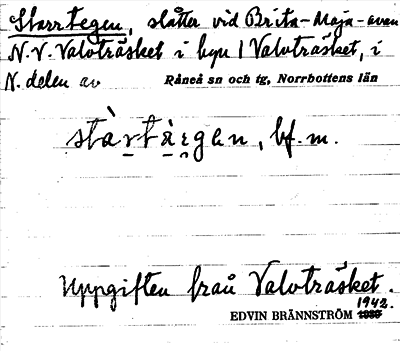 Starrtegen, slåtter vid Brita-Maja-aven
N.V. Valvträsket i byn Valvträsket, i
N. delen av Råneå sn och tg, Norrbottens län
stàrtä̀gen, bf. m.
Uppgiften från Valvträsket.
1942.
EDVIN BRÄNNSTRÖM